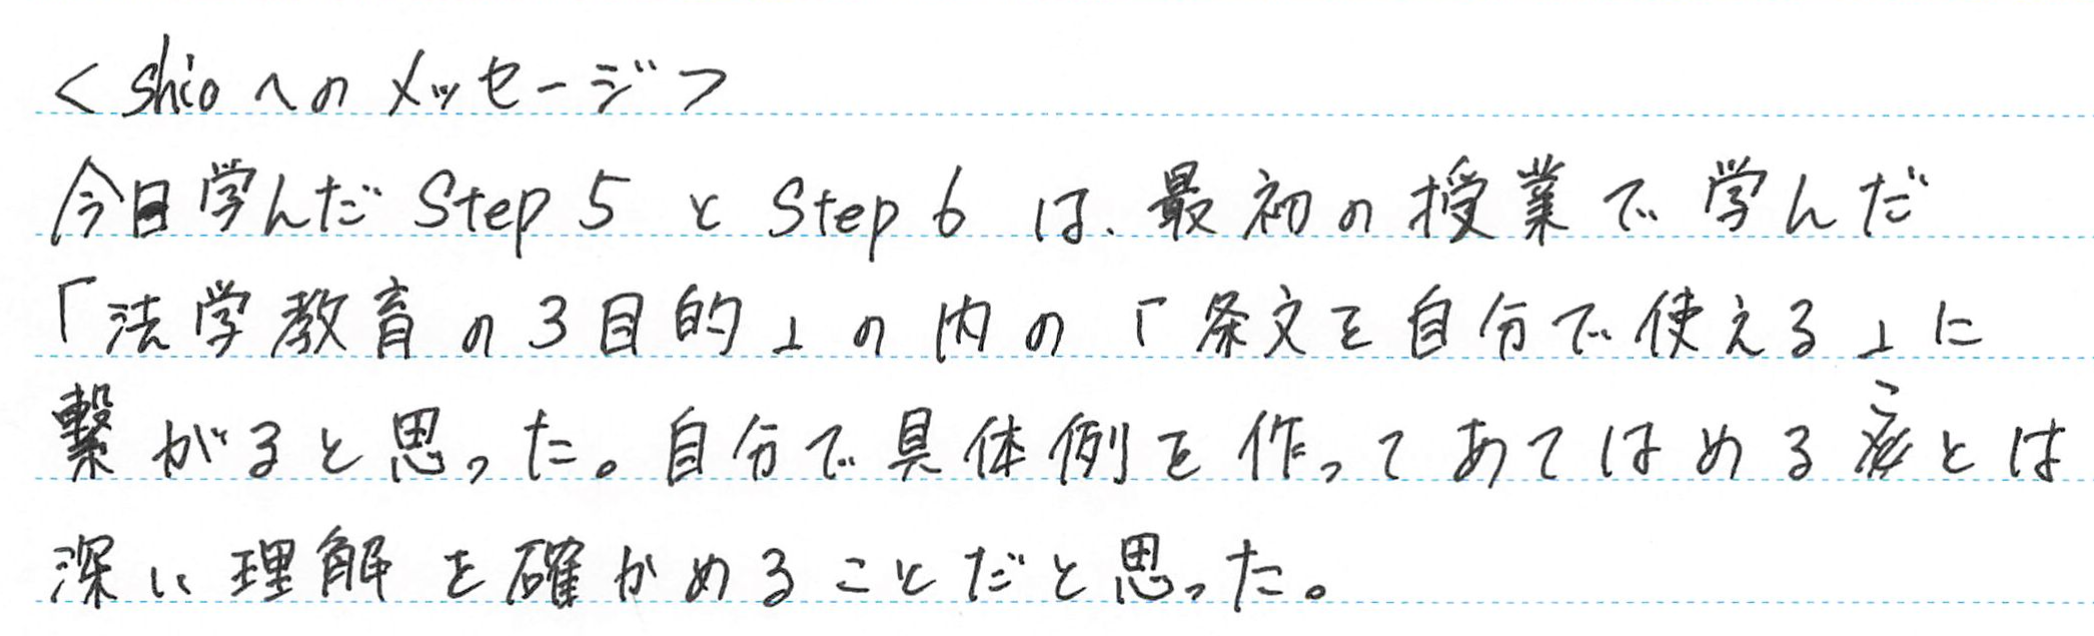 ＜shioへのメッセージ＞
今日学んだStep 5 と Step 6 は、最初の授業で学んだ
「法学教育の3目的」の内の「条文を自分で使える」に
繋がると思った。自分で具体例を作ってあてはめることは
深い理解を確かめることだと思った。